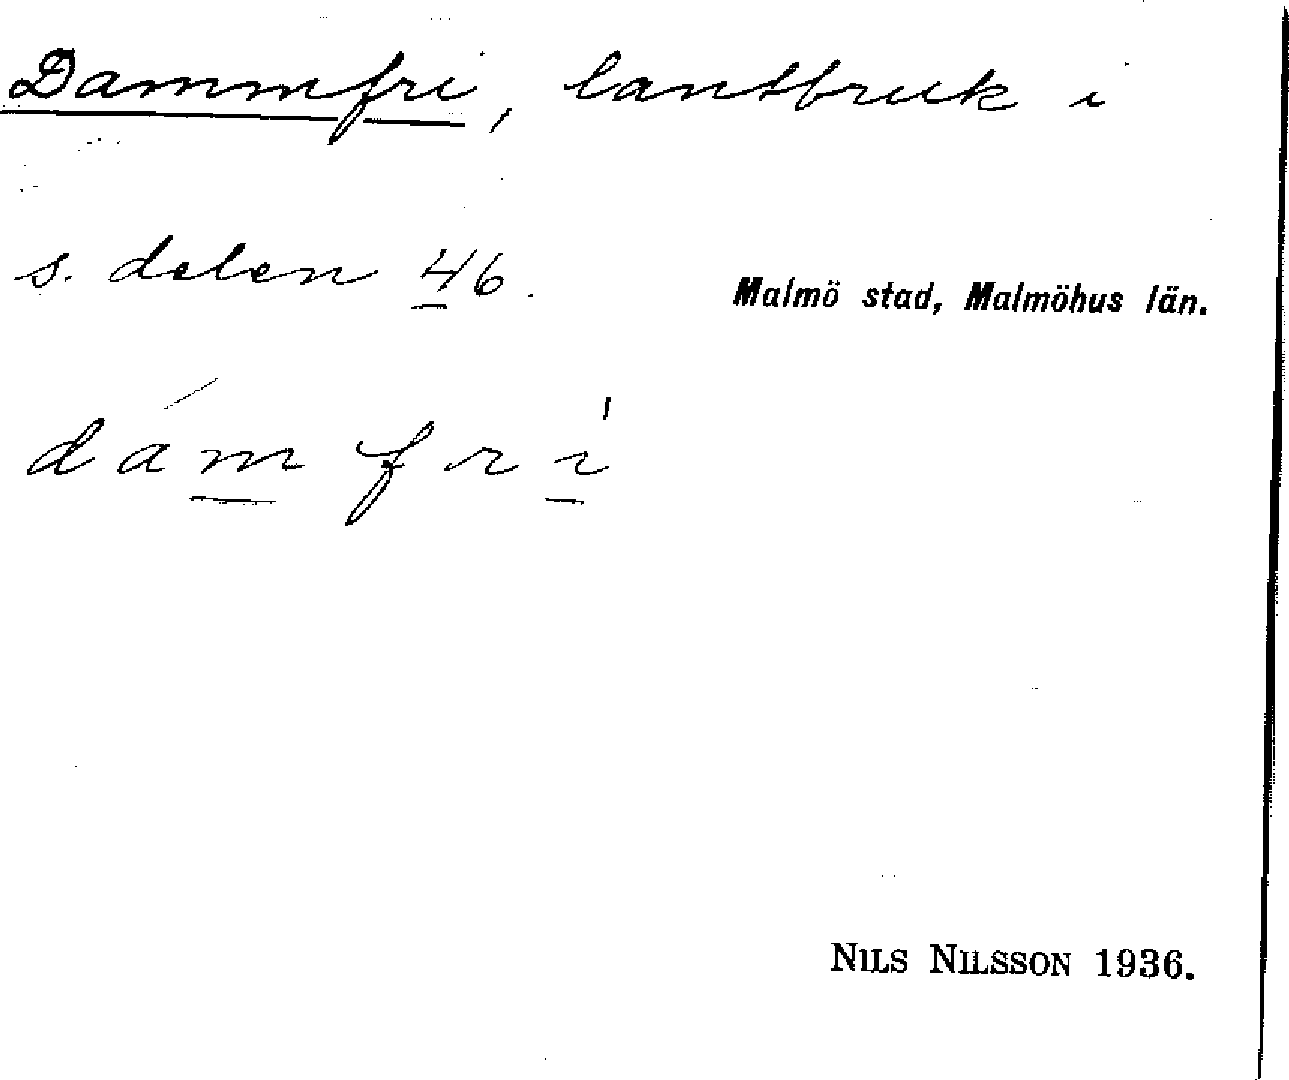 Dammfri, lantbruk i
s. delen 46.
Malmö stad, Malmöhus län.
dámfrí
NILS NILSSON 1936.